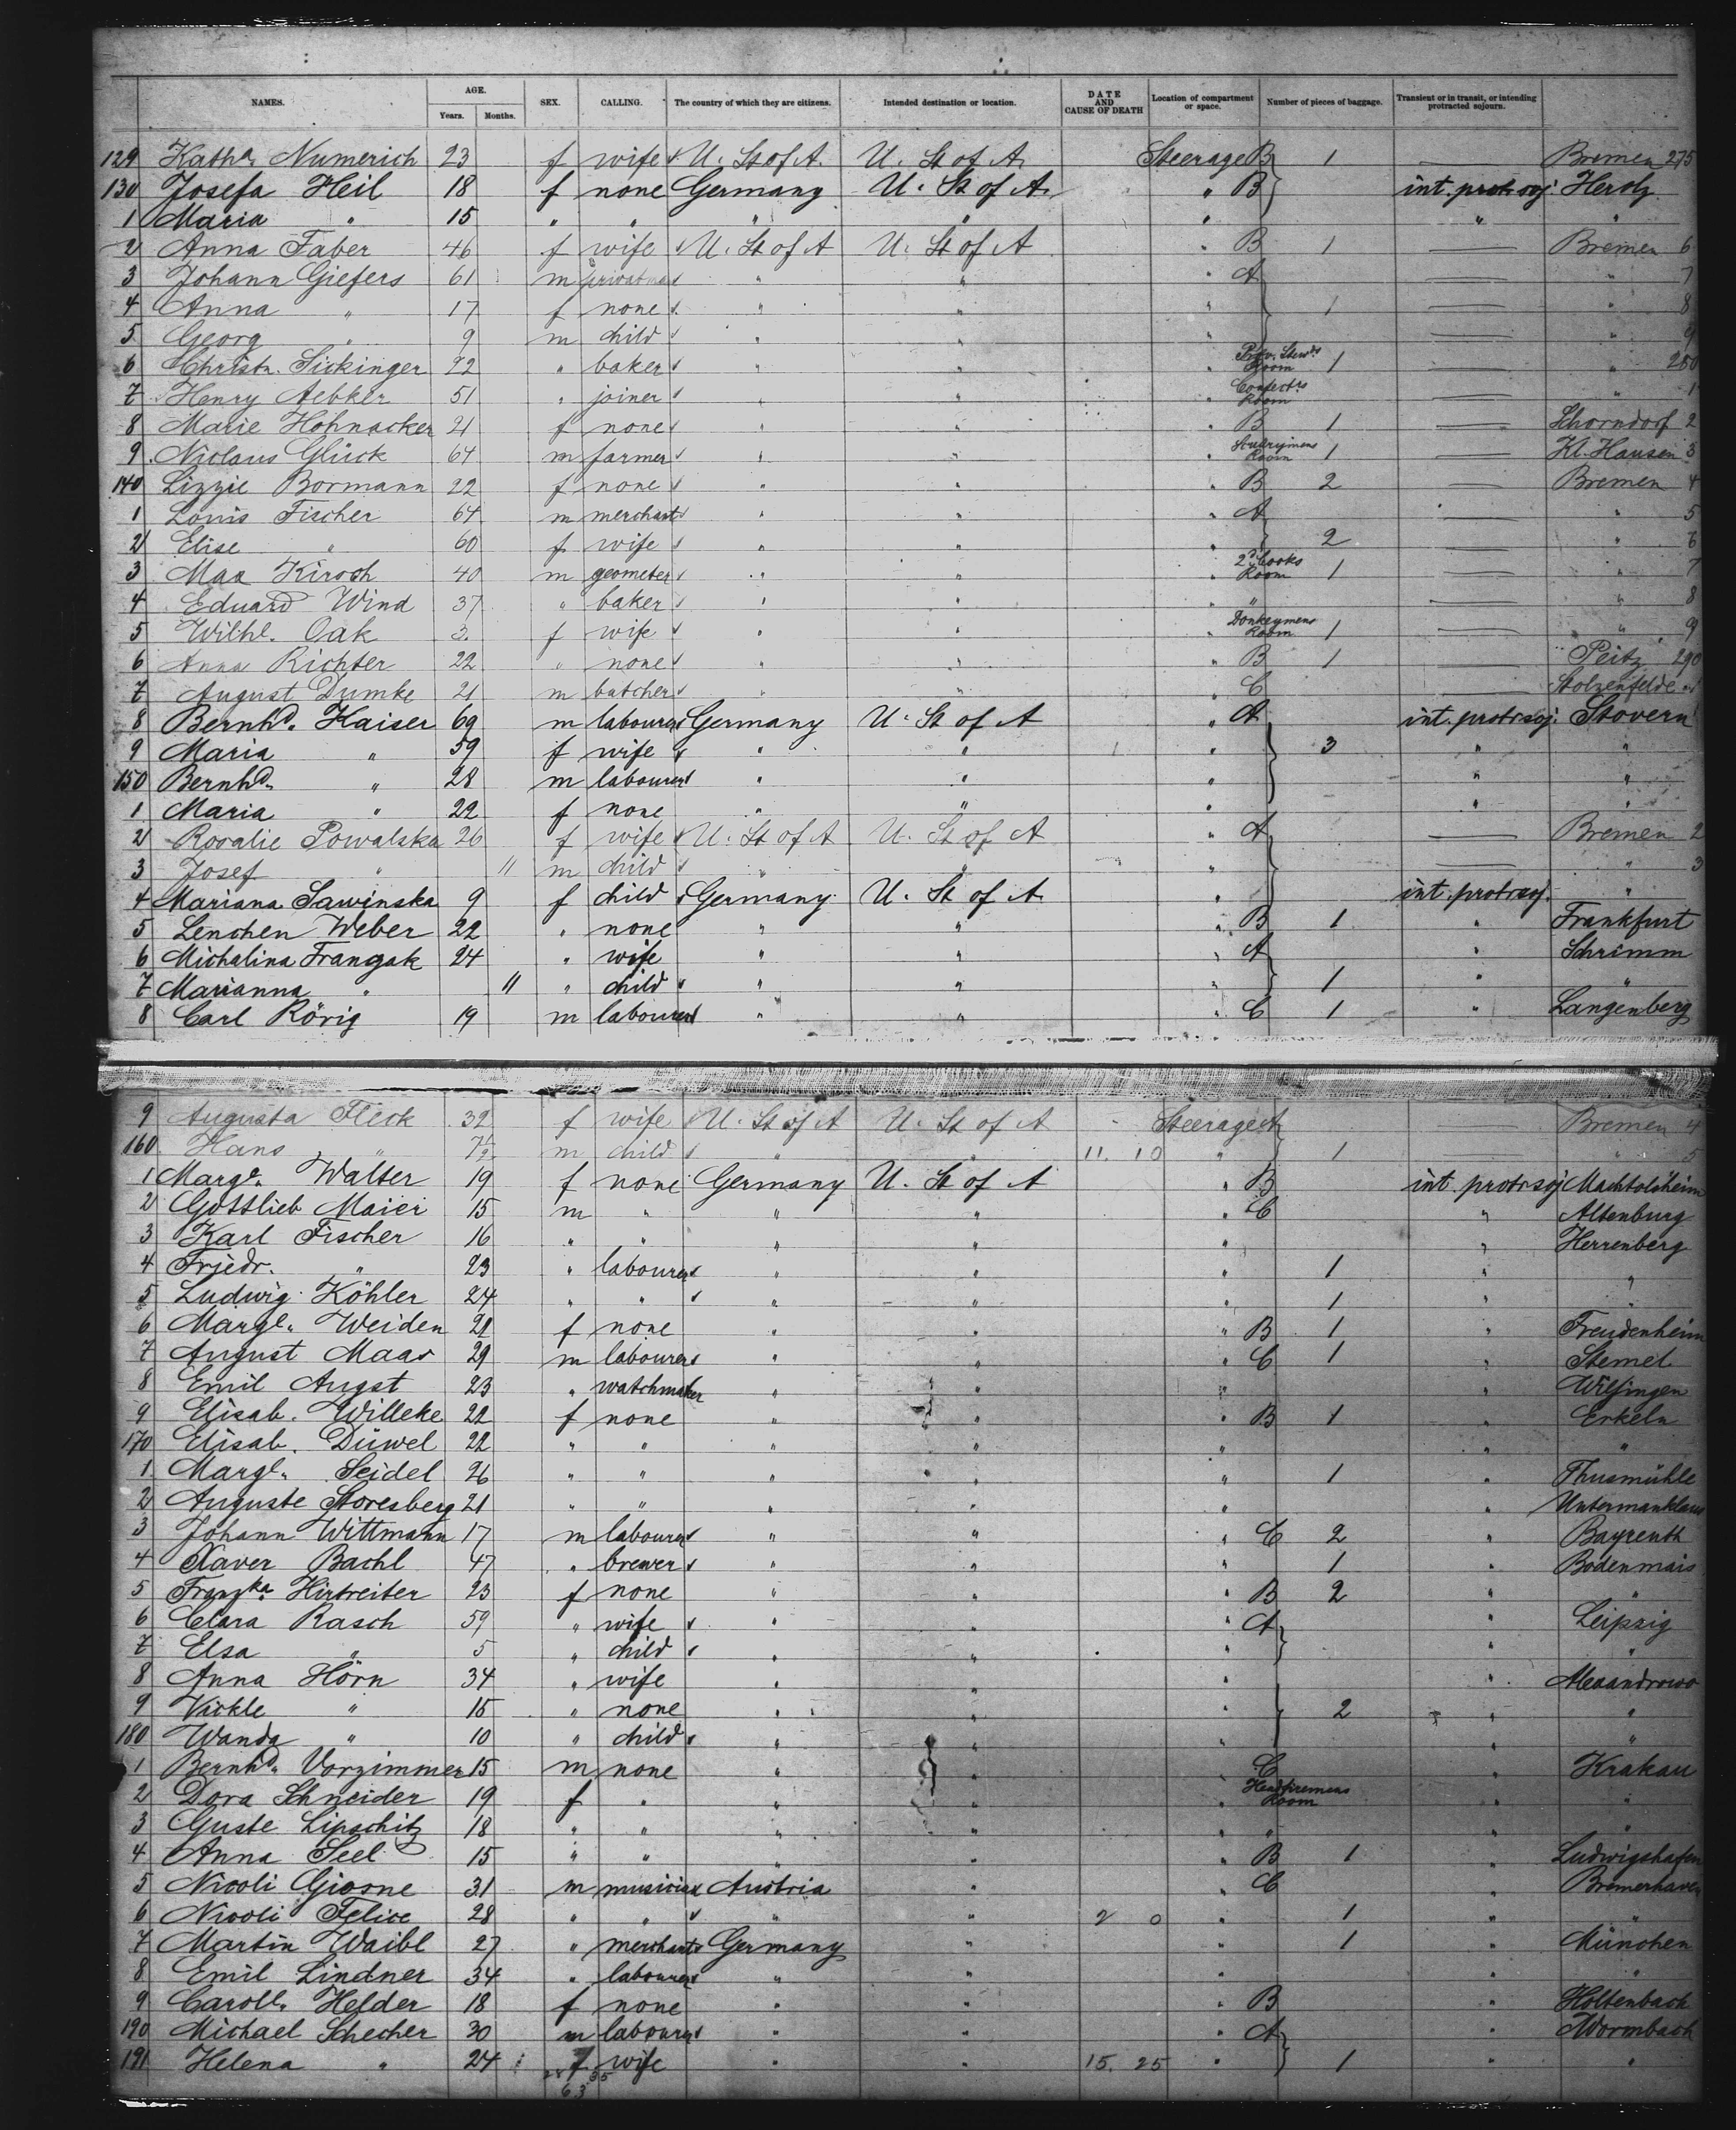 NAMES. AGE. Years. Months. SEX. CALLING. The country of which they are citizens. Intended destination or location. DATE AND CAUSE OF DEATH Location of compartment or space. Number of pieces of baggage. Transient or in transit, or intending protracted sojourn.
129 Kath^a. Numerich 23 f wife U. St of A. U. St of A. Steerage B 1 — Bremen 275
130 Josefa Heil 18 f none Germany U. St of A. " B int. protr soj. Herolz
1 Maria " 15 " " " " " " "
2 Anna Faber 46 f wife U. St of A U. St of A " B 1 — Bremen 6
3 Johann Giefers 61 m privatman " " " A — " 7
4 Anna " 17 f none " " " 1 — " 8
5 Georg " 9 m child " " " — " 9
6 Christn. Sickinger 22 " baker " " " Prov. Stew^ds Room 1 — " 280
7 Henry Aebker 51 " joiner " " " Confect^rs Room — " 1
8 Marie Hohnacker 21 f none " " " B 1 — Schorndorf 2
9 Niclaus Glück 64 m farmer " " " Room 1 — Kl. Hausen 3
140 Lizzie Bormann 22 f none " " " B 2 — Bremen 4
1 Louis Fischer 64 m merchant " " " A — " 5
2 Elise " 60 f wife " " " 2 — " 6
3 Max Kirsch 40 m geometer " " " 2^d Cooks Room 1 — " 7
4 Eduard Wind 37 " baker " " " " — " 8
5 Wilhl. Oak 3. f wife " " " Donkeymens Room 1 — " 9
6 Anna Richter 22 " none " " " B 1 — Peitz 290
7 August Dumke 21 m butcher " " " C — Stolzenfelde
8 Bernh^d. Kaiser 69 m labourer Germany U. St of A " A int. protr soj. Stovern
9 Maria " 59 f wife " " " 3 " "
150 Bernh^d. " 28 m labourer " " " " "
1 Maria " 22 f none " " " " "
2 Rosalie Powalska 26 f wife U. St of A U. St of A " A — Bremen 2
3 Josef " 11 m child " " " — " 3
4 Mariana Sawinska 9 f child Germany U. St of A " int. protr soj. "
5 Lenchen Weber 22 " none " " " B 1 " Frankfurt
6 Michalina Franzak 24 " wife " " " A " Schrimm
7 Marianna " 11 " child " " " 1 " "
8 Carl Rörig 19 m labourer " " " C 1 " Langenberg
9 Augusta Fleck 32 f wife U. St of A U. St of A Steerage A — Bremen 4
160 Hans " 7½ m child " " 11. 10 " 1 — " 5
1 Marg^e. Walter 19 f none Germany U. St of A " B int. protr soj Machtolsheim
2 Gottlieb Maier 15 m " " " " C " Altenburg
3 Karl Fischer 16 " " " " " " Herrenberg
4 Friedr. " 23 " labourer " " " 1 " "
5 Ludwig Köhler 24 " " " " " 1 " "
6 Marg^e. Weiden 21 f none " " " B 1 " Freudenheim
7 August Maas 29 m labourer " " " C 1 " Stemel
8 Emil Angst 23 " watchmaker " " " " Wilfingen
9 Elisab. Willeke 22 f none " " " B 1 " Erkeln
170 Elisab. Düwel 22 " " " " " " "
1 Marg^e. Seidel 26 " " " " " 1 " Thusmühle
2 Auguste Storesberg 21 " " " " " " Untermanklaus
3 Johann Wittmann 17 m labourer " " " C 2 " Bayreuth
4 Xaver Bachl 47 " brewer " " " 1 " Bodenmais
5 Franz^ka. Hirtreiter 23 f none " " " B 2 " "
6 Clara Rasch 59 " wife " " " A " Leipzig
7 Elsa " 5 " child " " " " "
8 Anna Hörn 34 " wife " " " " Alexandrowo
9 Vickle " 15 " none " " " 2 " "
180 Wanda " 10 " child " " " " "
1 Bernh^d. Vorzimmer 15 m none " " " C " Krakau
2 Dora Schneider 19 f " " " " Headfiremens Room " "
3 Guste Lipschitz 18 " " " " " " " "
4 Anna Seel 15 " " " " " B 1 " Ludwigshafen
5 Nicoli Giosne 31 m musician Austria " " C " Bremerhaven
6 Nicoli Felice 28 " " " " 2 0 " 1 " "
7 Martin Waibl 27 " merchant Germany " " 1 " München
8 Emil Lindner 34 " labourer " " " " "
9 Caroll. Helder 18 f none " " " B " Höltenbach
190 Michael Schecher 30 m labourer " " " A " Wormbach
191 Helena " 24 f wife " " 15. 25 " 1 " "
28 35
63